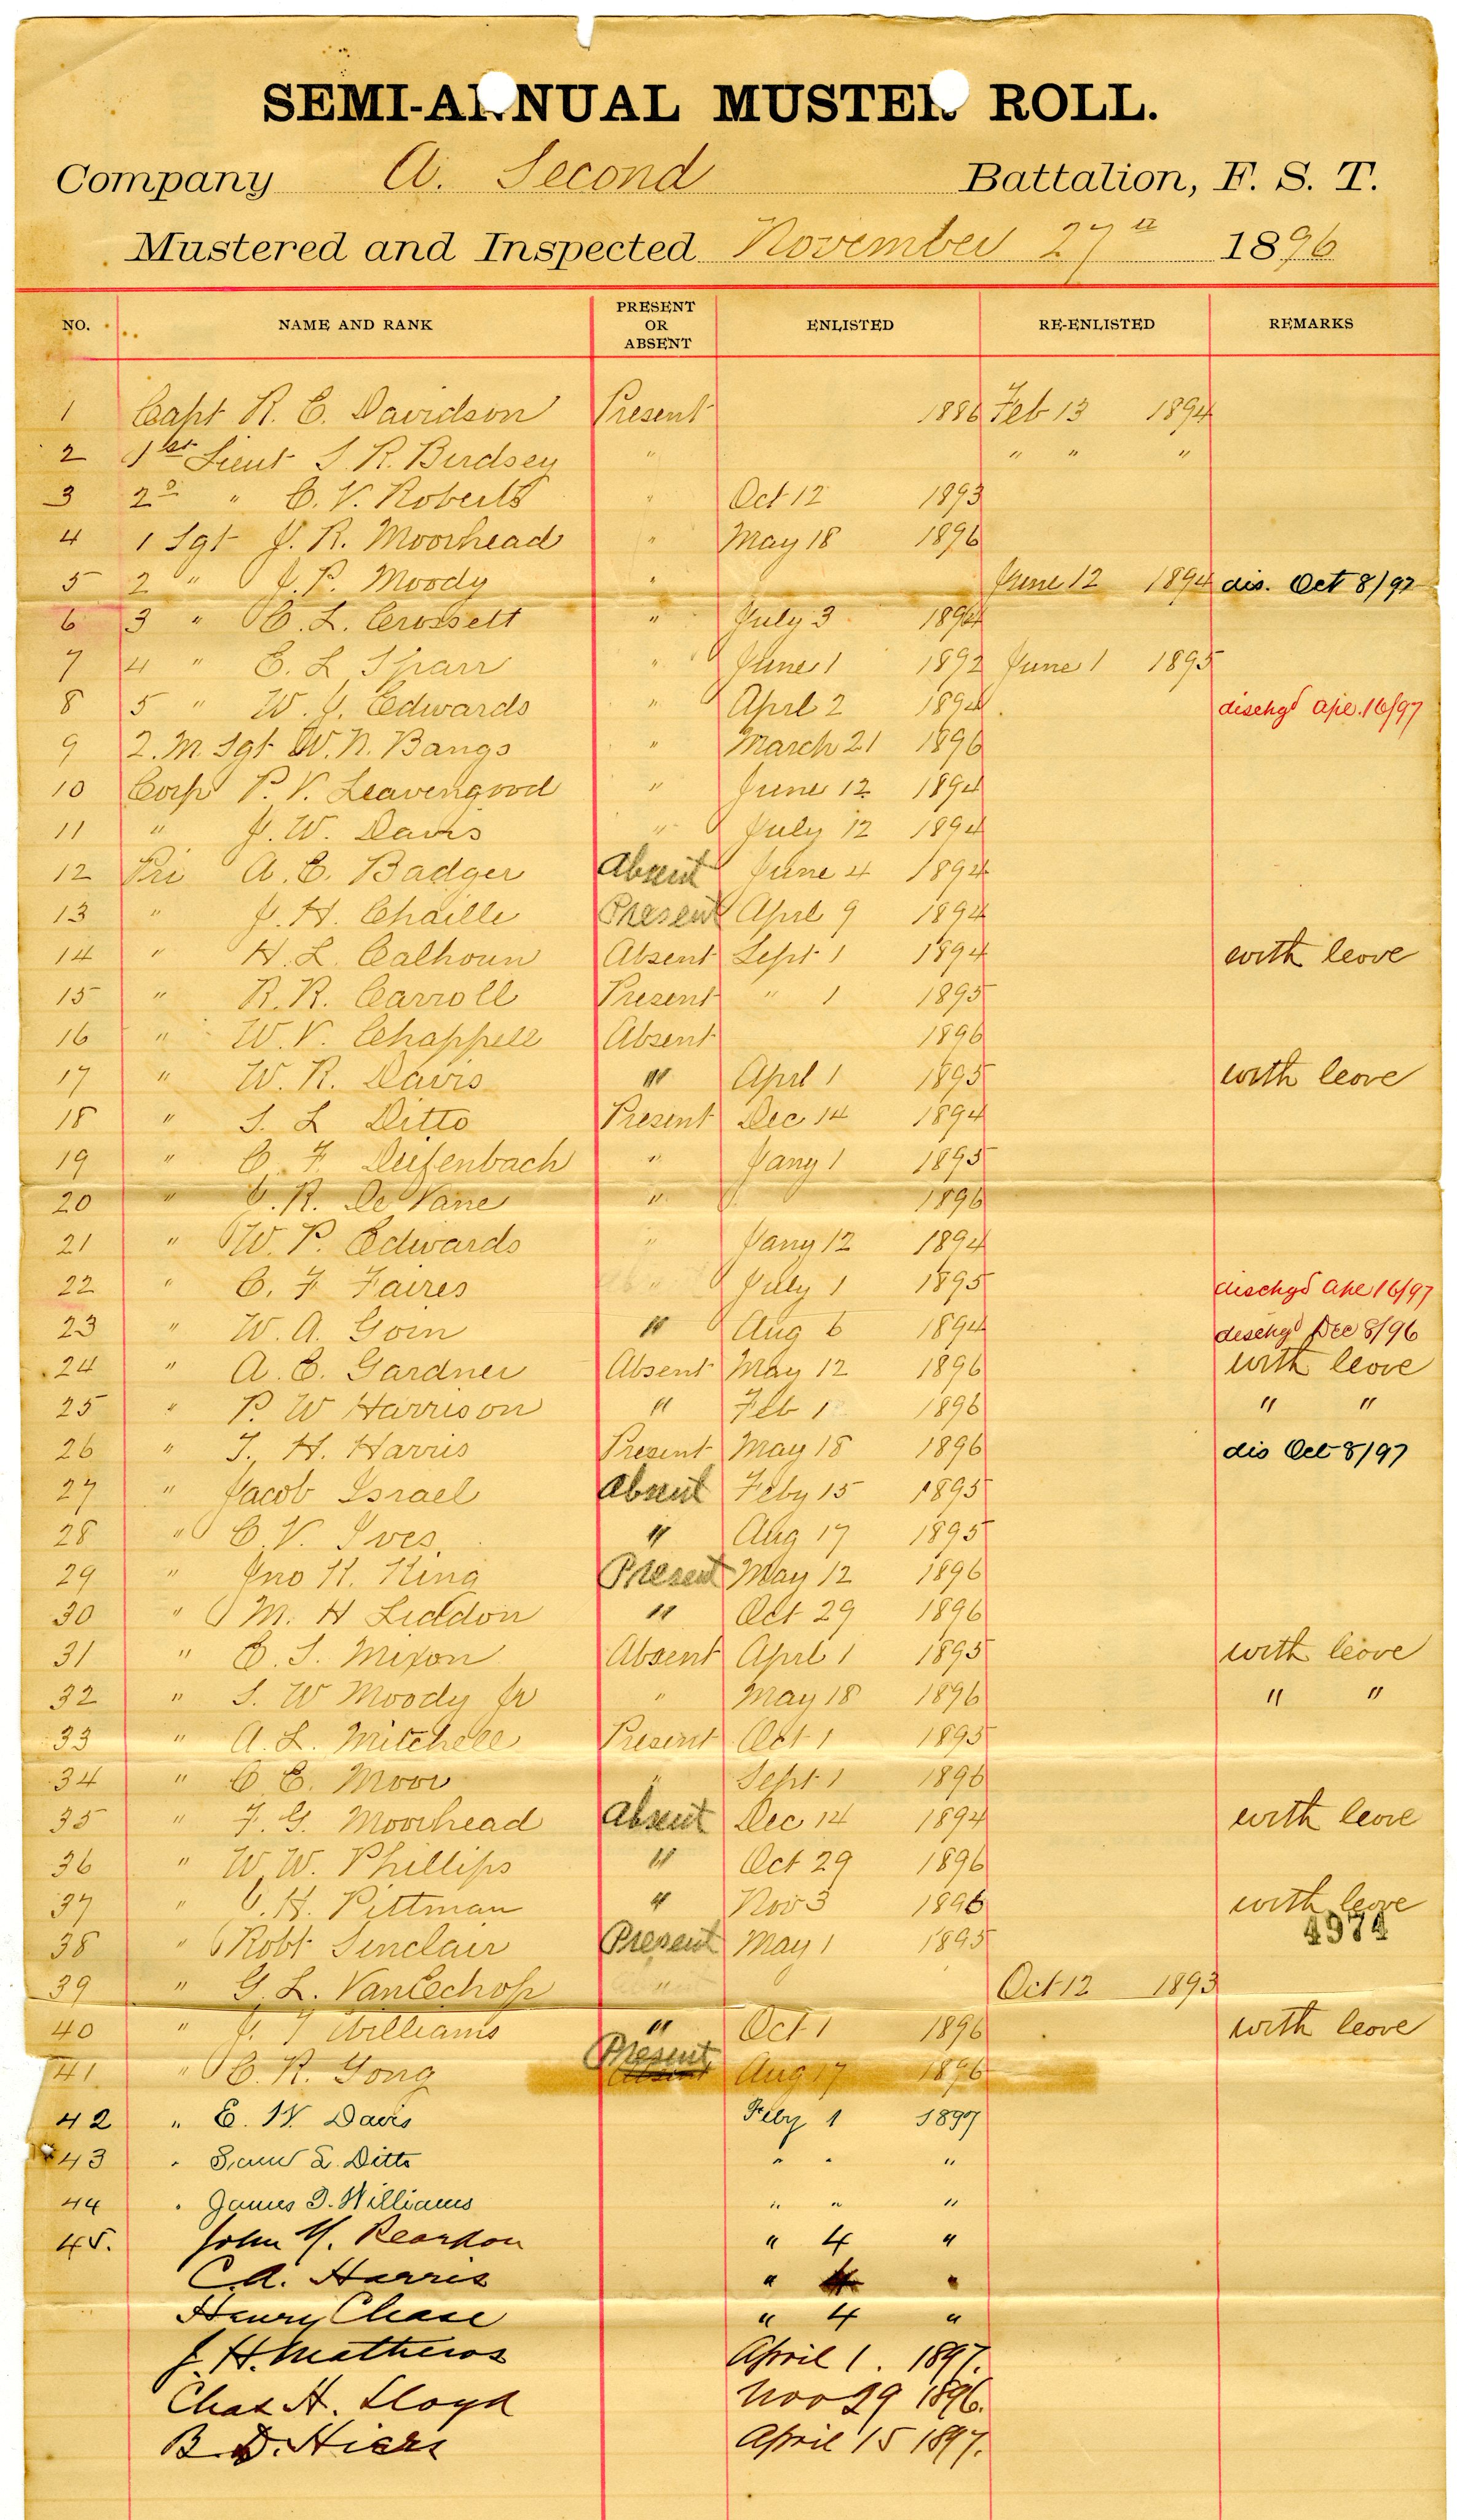 SEMI-ANNUAL MUSTER ROLL.
Company A. Second Battalion, F. S. T.
Mustered and Inspected November 27th 1896
NO. NAME AND RANK PRESENT OR ABSENT ENLISTED RE-ENLISTED REMARKS
1 Capt R. C. Davidson Present 1886 Feb 13 1894
2 1st Lieut S. R. Birdsey " " " "
3 2d " C. V. Roberts " Oct 12 1893
4 1 Sgt J. R. Moorhead " May 18 1896
5 2 " J. P. Moody " June 12 1894 dis. Oct 8/97
6 3 " C. L. Crossett " July 3 1894
7 4 " E. L. Sparr " June 1 1892 June 1 1895
8 5 " W. J. Edwards " Aprl 2 1894 dischgd Ape. 16/97
9 2. M. Sgt W. N. Bangs " March 21 1896
10 Corp P. V. Leavengood " June 12 1894
11 " J. W. Davis " July 12 1894
12 Pri A. E. Badger Absent June 4 1894
13 " J. H. Chaille Present Aprl 9 1894
14 " H. L. Calhoun Absent Sept 1 1894 with leave
15 " R. R. Carroll Present " 1 1895
16 " W. V. Chappell Absent 1896
17 " W. R. Davis " Aprl 1 1895 with leave
18 " S. L Ditto Present Dec 14 1894
19 " C. F. Deifenbach " Jany 1 1895
20 " C. R. De Vane " 1896
21 " W. P. Edwards " Jany 12 1894
22 " C. F Faires " July 1 1895 dischgd Ape 16/97
23 " W. A. Goin " Aug 6 1894 dischgd Dec 8/96
24 " A. E. Gardner Absent May 12 1896 with leave
25 " P. W Harrison " Feb 1 1896 " "
26 " T. H. Harris Present May 18 1896 dis Oct 8/97
27 " Jacob Israel Absent Feby 15 1895
28 " C. V. Ives " Aug 17 1895
29 " Jno K. King Present May 12 1896
30 " M. H Liddon " Oct 29 1896
31 " E. S. Mixon Absent Aprl 1 1895 with leave
32 " S. W Moody Jr " May 18 1896 " "
33 " A. L. Mitchell Present Oct 1 1895
34 " C E. Moor " Sept 1 1896
35 " F. G. Moorhead Absent Dec 14 1894 with leave
36 " W. W. Phillips " Oct 29 1896
37 " C. H. Pittman " Nov 3 1896 with leave
4974
38 " Robt Sinclair Present May 1 1895
39 " G. L. VanEchop " Oct 12 1893
40 " J. T Williams " Oct 1 1896 with leave
41 " C. R. Yong Present Absent Aug 17 1896
42 " E. W. Davis Feby 1 1897
43 " Sam L. Ditto " " "
44 " James T. Williams " " "
45. John M. Reardon " 4 "
C. A. Harris " 4 "
Henry Chase " 4 "
J. H. Mathews April 1. 1897.
Chas H. Lloyd Nov 29 1896.
B. D. Hiers April 15 1897.